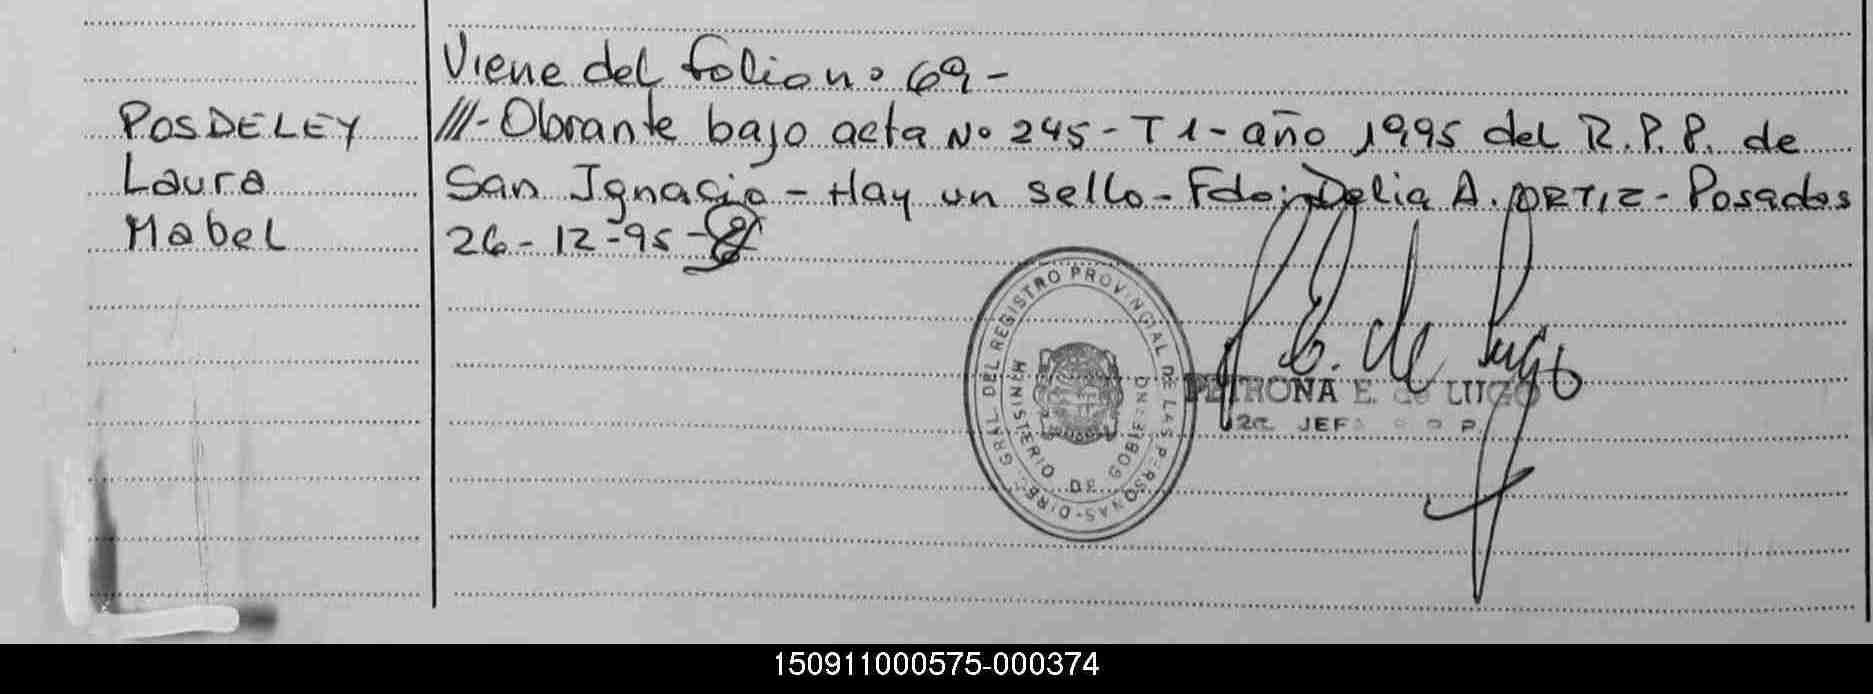 Viene del folio nº 69-
POSDELEY
Laura
Mabel
///-Obrante bajo acta Nº 245-T1-año 1995 del R.P.P. de
San Ignacio-Hay un sello-Fdo: Delia A. ORTIZ-Posadas
26-12-95-
DIRE. GRAL DEL REGISTRO PROVINCIAL DE LAS PERSONAS-
MINISTERIO DE GOBIERNO
P. E. de Lugo
PETRONA E. de LUGO
JEF
150911000575-000374